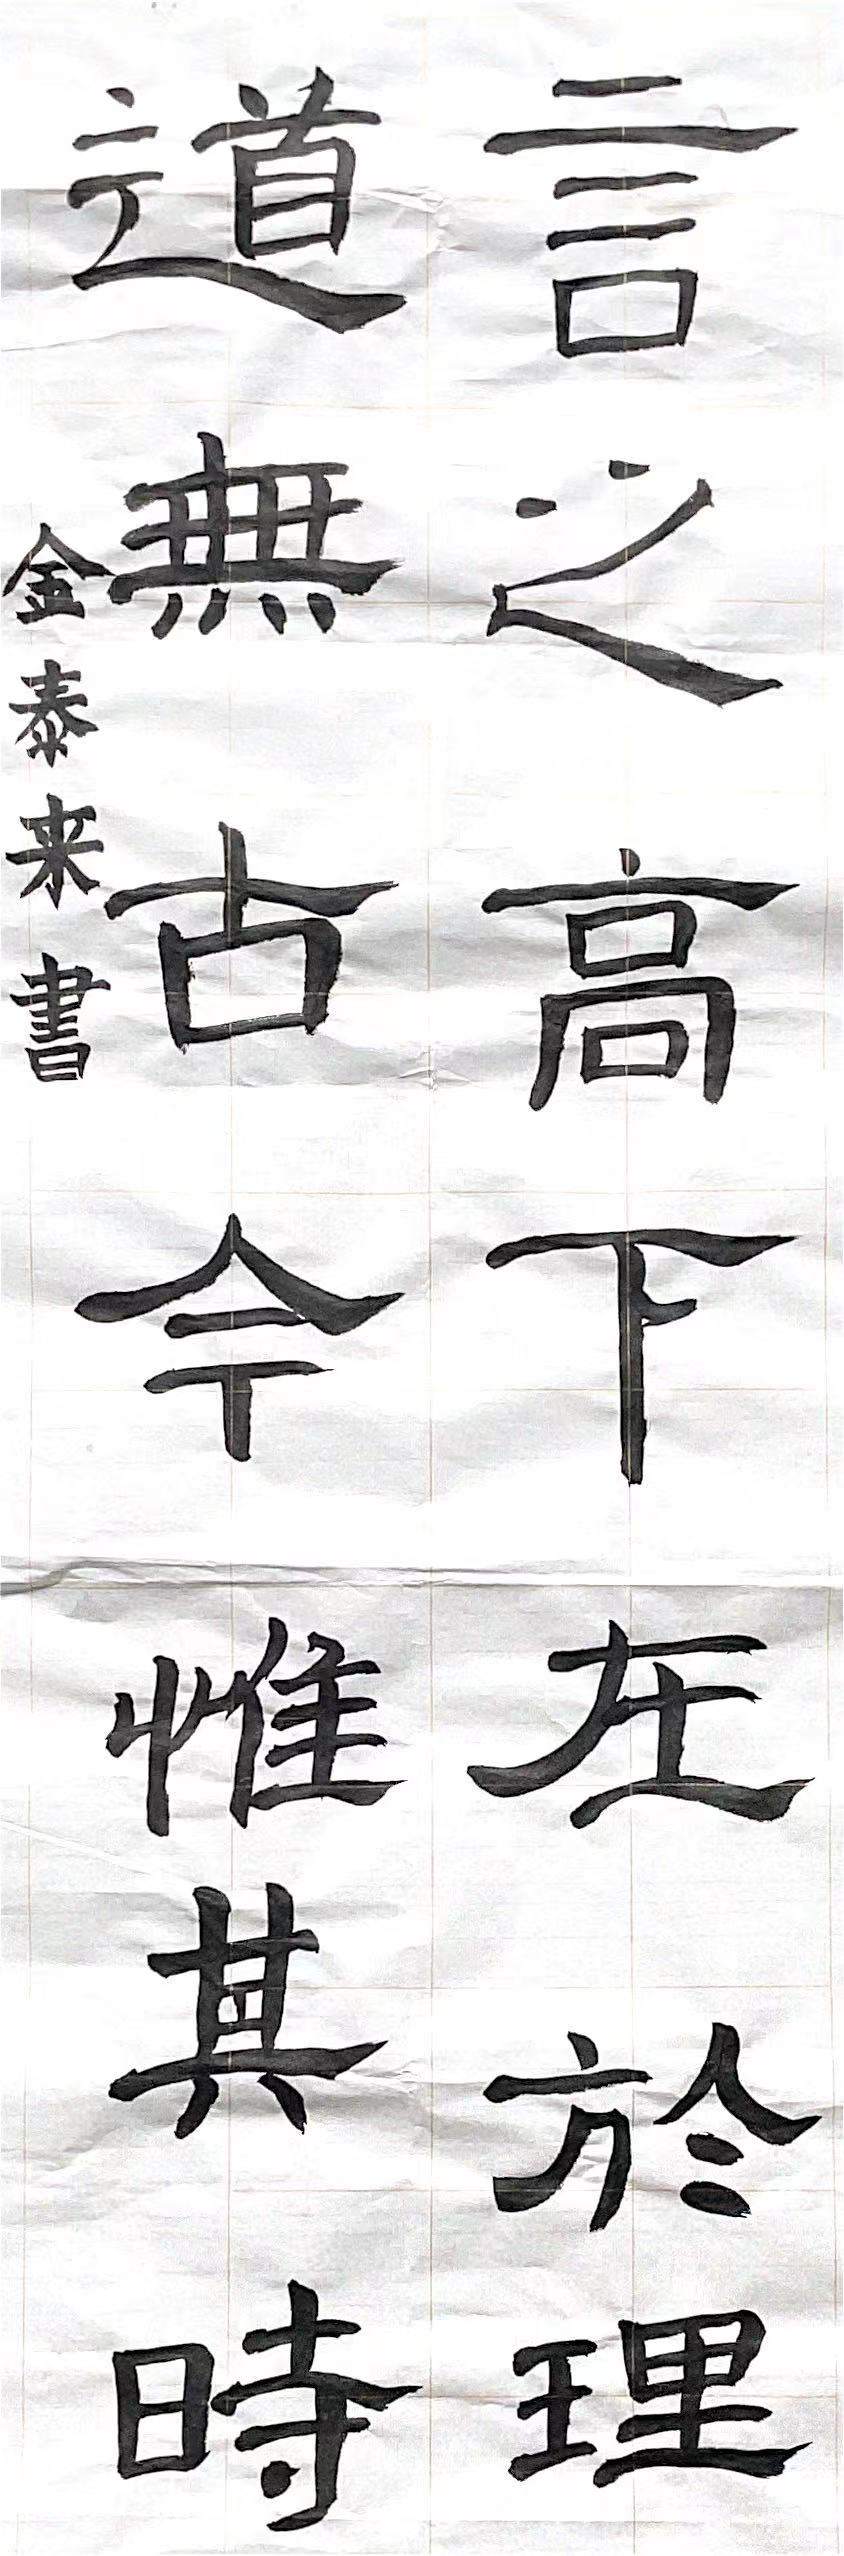 言之高下在於理
道無古今惟其時
金泰来書